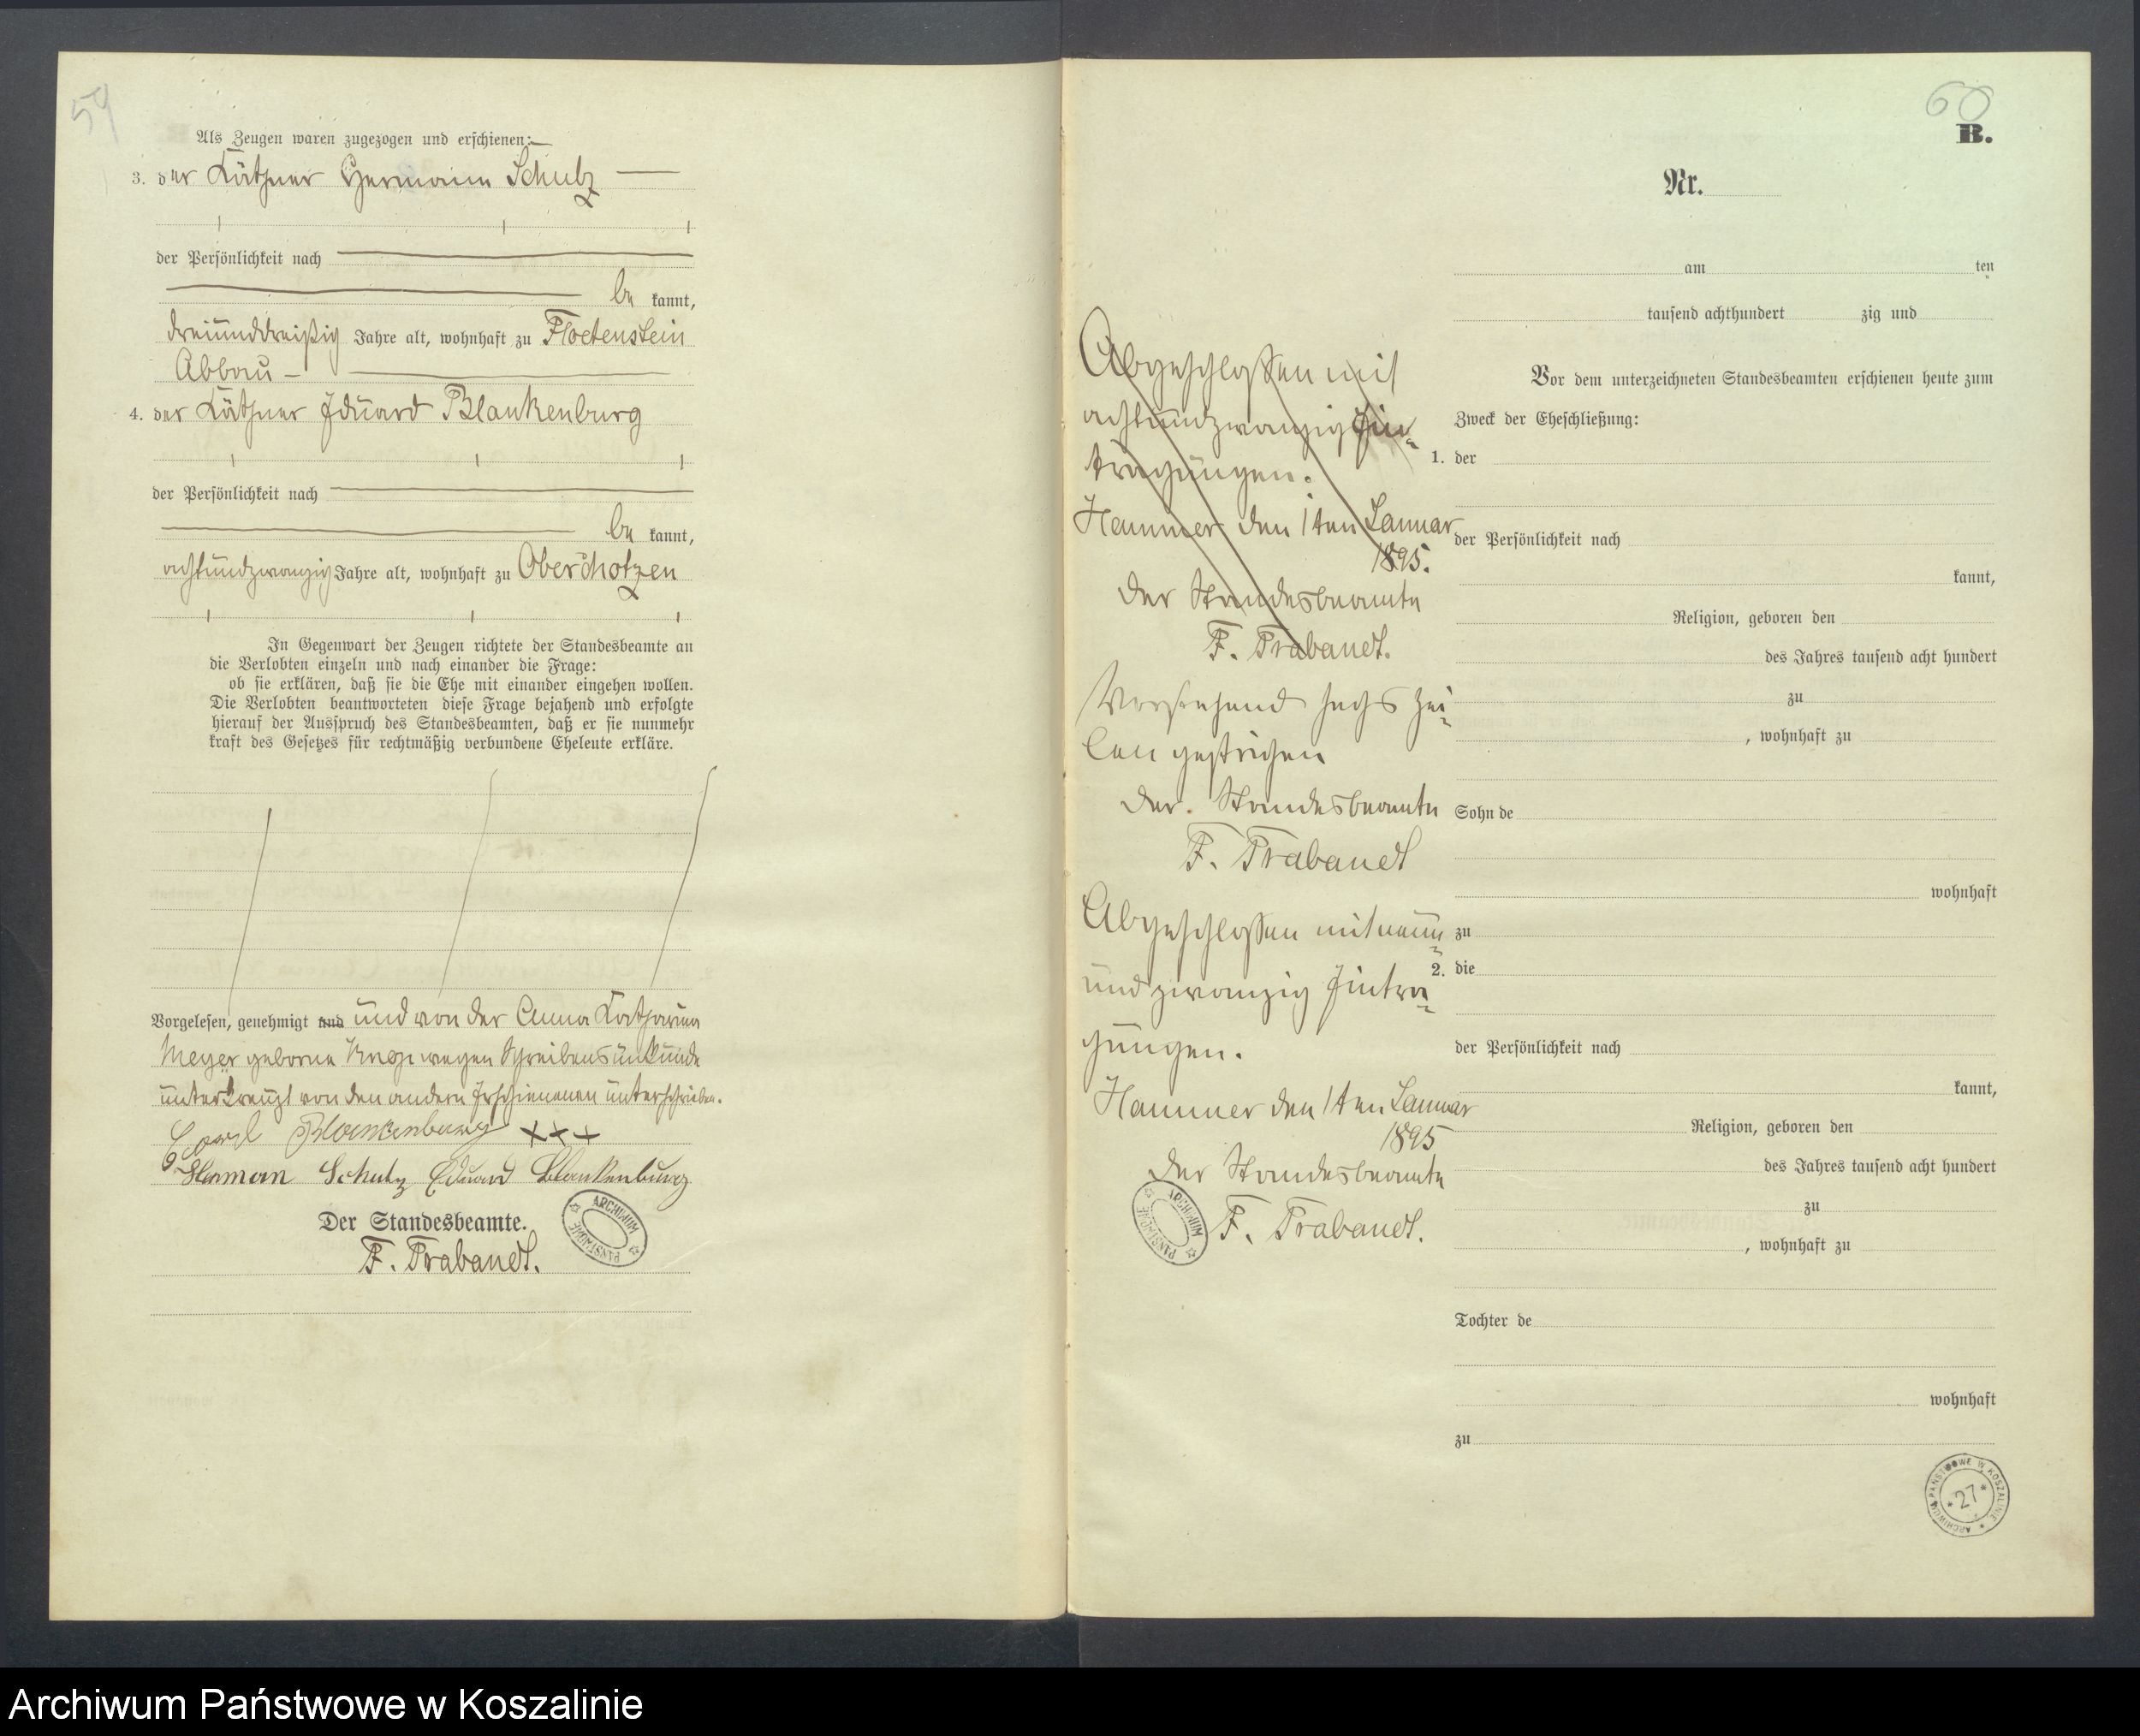 59
Als Zeugen waren zugezogen und erschienen:
3. der Käthner Hermann Schulz
der Persönlichkeit nach
be kannt,
dreiunddreißig Jahre alt, wohnhaft zu Floetenstein
Abbau
4. der Käthner Eduard Blankenburg
der Persönlichkeit nach
be kannt,
achtundzwanzig Jahre alt, wohnhaft zu Oberchotzen
In Gegenwart der Zeugen richtete der Standesbeamte an
die Verlobten einzeln und nach einander die Frage:
ob sie erklären, daß sie die Ehe mit einander eingehen wollen.
Die Verlobten beantworteten diese Frage bejahend und erfolgte
hierauf der Ausspruch des Standesbeamten, daß er sie nunmehr
kraft des Gesetzes für rechtmäßig verbundene Eheleute erkläre.
Vorgelesen, genehmigt und und von der Anna Katharina
Meyer geborne wegen Schreibensunkunde
unterkreuzt von den andern Erschienenen unterschrieben.
Carl Blankenburg +++
Herman Schulz Eduard Blankenburg
Der Standesbeamte.
F. Trabandt.
ARCHIWUM PAŃSTWOWE
60
B.
Nr.
am ten
tausend achthundert zig und
Vor dem unterzeichneten Standesbeamten erschienen heute zum
Zweck der Eheschließung:
1. der
der Persönlichkeit nach
kannt,
Religion, geboren den
des Jahres tausend acht hundert
zu
, wohnhaft zu
Sohn de
wohnhaft
zu
2. die
der Persönlichkeit nach
kannt,
Religion, geboren den
des Jahres tausend acht hundert
zu
, wohnhaft zu
Tochter de
wohnhaft
zu
Abgeschlossen mit
achtundzwanzig Ein-
tragungen.
Hammer den 1ten Januar
1895.
Der Standesbeamte
F. Trabandt.
Vorstehend sechs Zei-
len gestrichen
Der Standesbeamte
F. Trabandt
Abgeschlossen mit neun-
undzwanzig Eintra-
gungen.
Hammer den 1ten Januar
1895
Der Standesbeamte
F. Trabandt.
ARCHIWUM PAŃSTWOWE
ARCHIWUM PAŃSTWOWE W KOSZALINIE
27
Archiwum Państwowe w Koszalinie